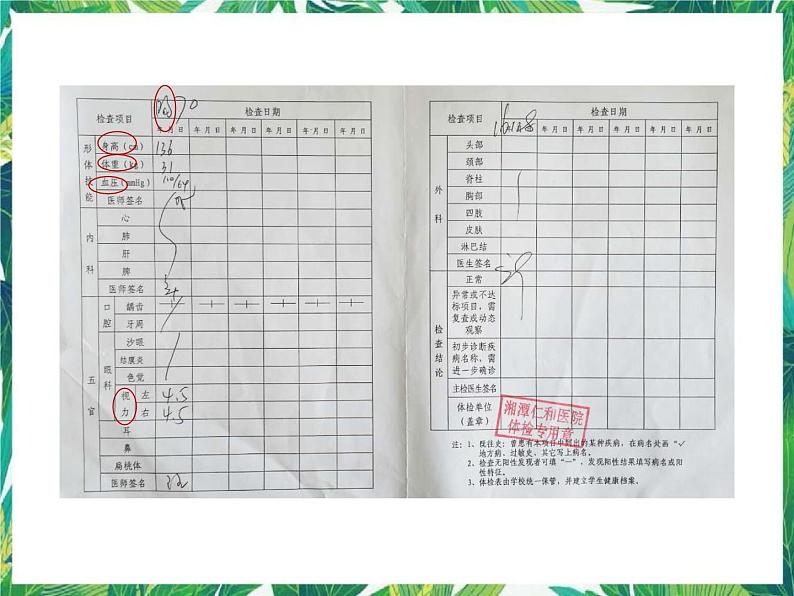 检查项目 检查日期
年 月 日 年 月 日 年 月 日 年 月 日 年 月 日 年 月 日
形体技能
身高（cm） 136
体重（kg） 31
血压（mmHg） 110/64
医师签名
内科
心
肺
肝
脾
医师签名
五官
口腔
龋齿
牙周
眼科
沙眼
结膜炎
色觉
视力
左 4.5
右 4.5
耳
鼻
扁桃体
医师签名
检查项目 检查日期
年 月 日 年 月 日 年 月 日 年 月 日 年 月 日
外科
头部
颈部
脊柱
胸部
四肢
皮肤
淋巴结
医生签名
检查结论
正常
异常或不达
标项目，需
复查或动态
观察
初步诊断疾
病名称，需
进一步确诊
主检医生签名
体检单位
（盖章）
湘潭仁和医院
体检专用章
注：1、既往史：曾患有本项目中列出的某种疾病，在病名处画“✓
地方病、过敏史、其它写上病名。
2、检查无阳性发现者可填“一”，发现阳性结果填写病名或阳
性特征。
3、体检表由学校统一保管，并建立学生健康档案。